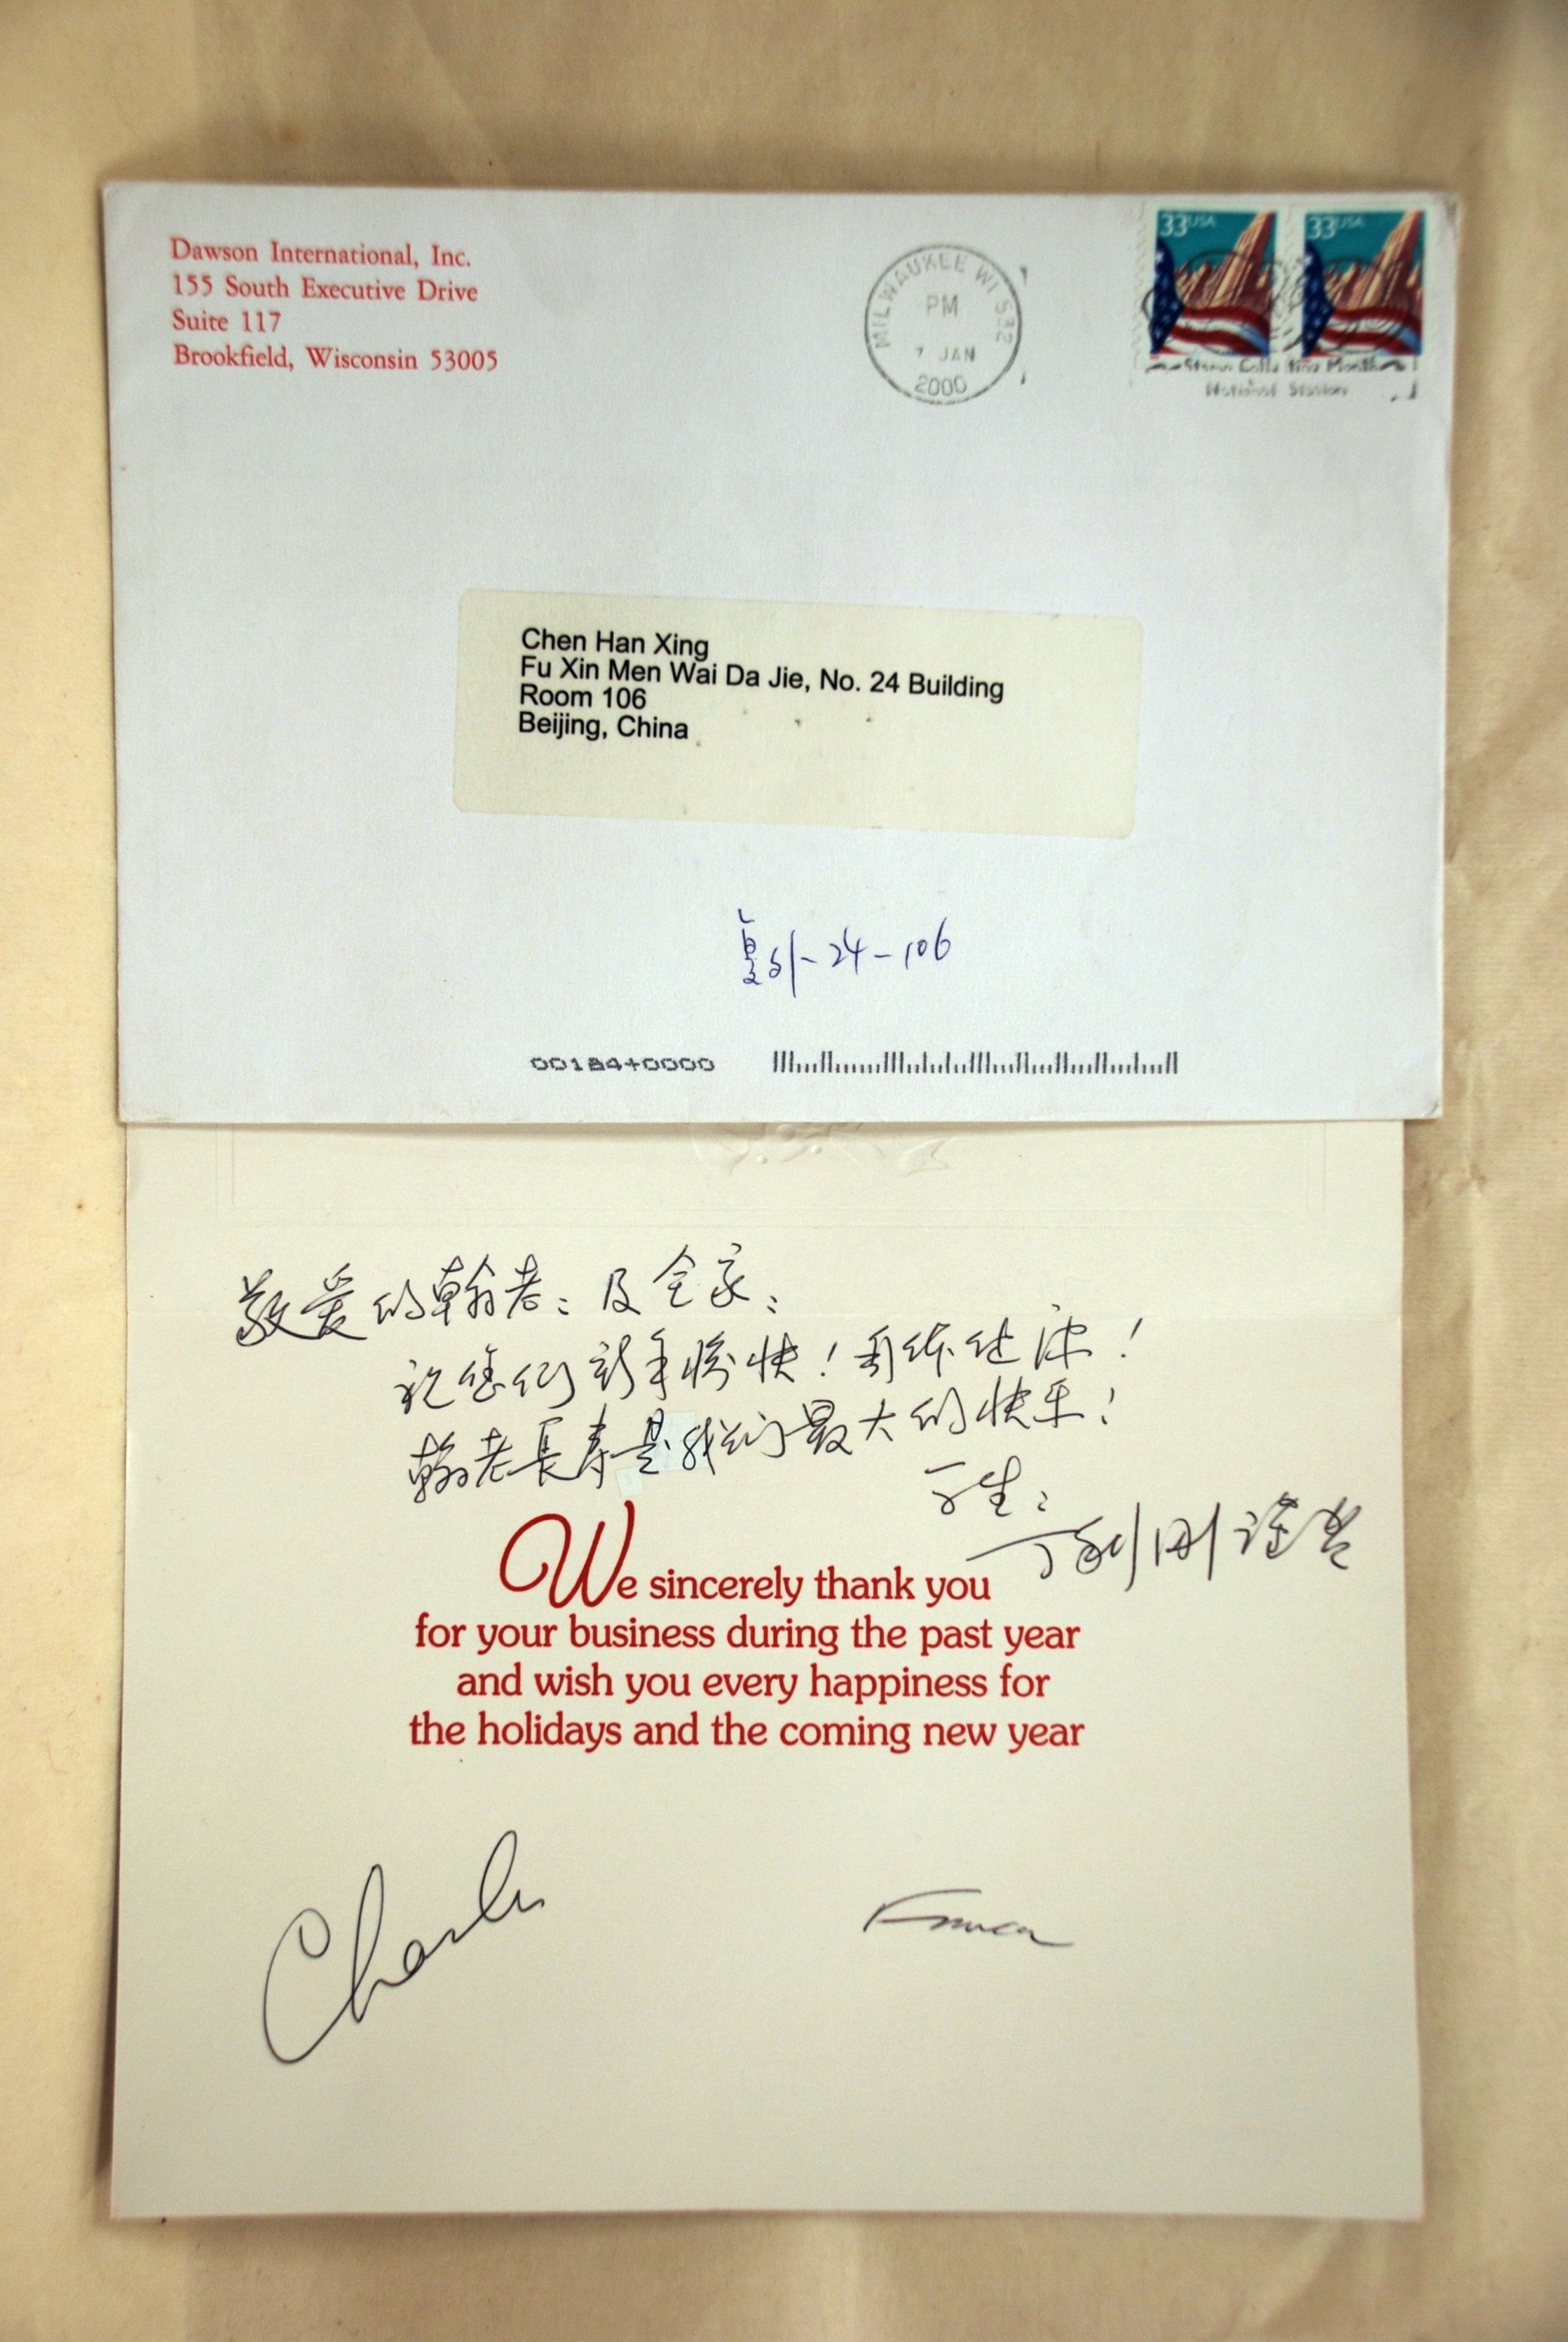 Dawson International, Inc.
155 South Executive Drive
Suite 117
Brookfield, Wisconsin 53005
MILWAUKEE WI 532
PM
7 JAN
2000
33USA
33USA
Stamp Collecting Month
National Station
Chen Han Xing
Fu Xin Men Wai Da Jie, No. 24 Building
Room 106
Beijing, China
复外-24-106
00184+0000
敬爱的翰老:及全家:
祝您们新年愉快!身体健康!
翰老長寿是我们最大的快乐!
We sincerely thank you
for your business during the past year
and wish you every happiness for
the holidays and the coming new year
Charles